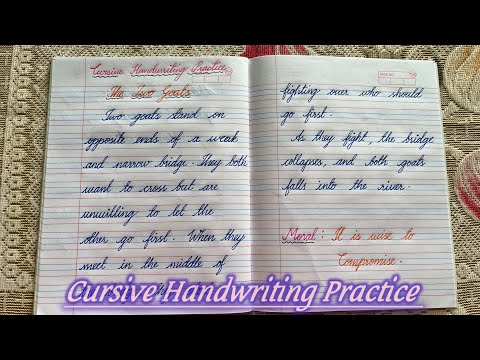 Cursive Handwriting Practice
The Two Goats
Two goats stand on
opposite ends of a weak
and narrow bridge. They both
want to cross but are
unwilling to let the
other go first. When they
meet in the middle of
fighting over who should
go first.
As they fight, the bridge
collapses, and both goats
falls into the river.
Moral: It is wise to
Compromise.
Cursive Handwriting Practice